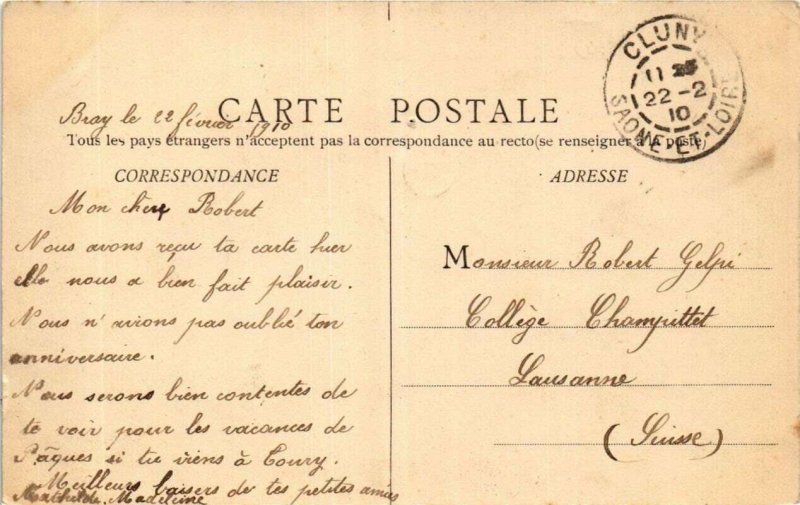 CARTE POSTALE
Bray le 22 février 1910
Tous les pays étrangers n'acceptent pas la correspondance au recto (se renseigner à la poste)
CLUNY
11
22 -2
10
SAONE-ET-LOIRE
CORRESPONDANCE
Mon cher Robert
Nous avons reçu ta carte hier
elle nous a bien fait plaisir.
Nous n'avions pas oublié ton
anniversaire.
Nous serons bien contentes de
te voir pour les vacances de
Pâques si tu viens à Toury.
Meilleurs baisers de tes petites amies
Mathilde. Madeleine
ADRESSE
Monsieur Robert Gelpi
Collège Champittet
Lausanne
(Suisse)